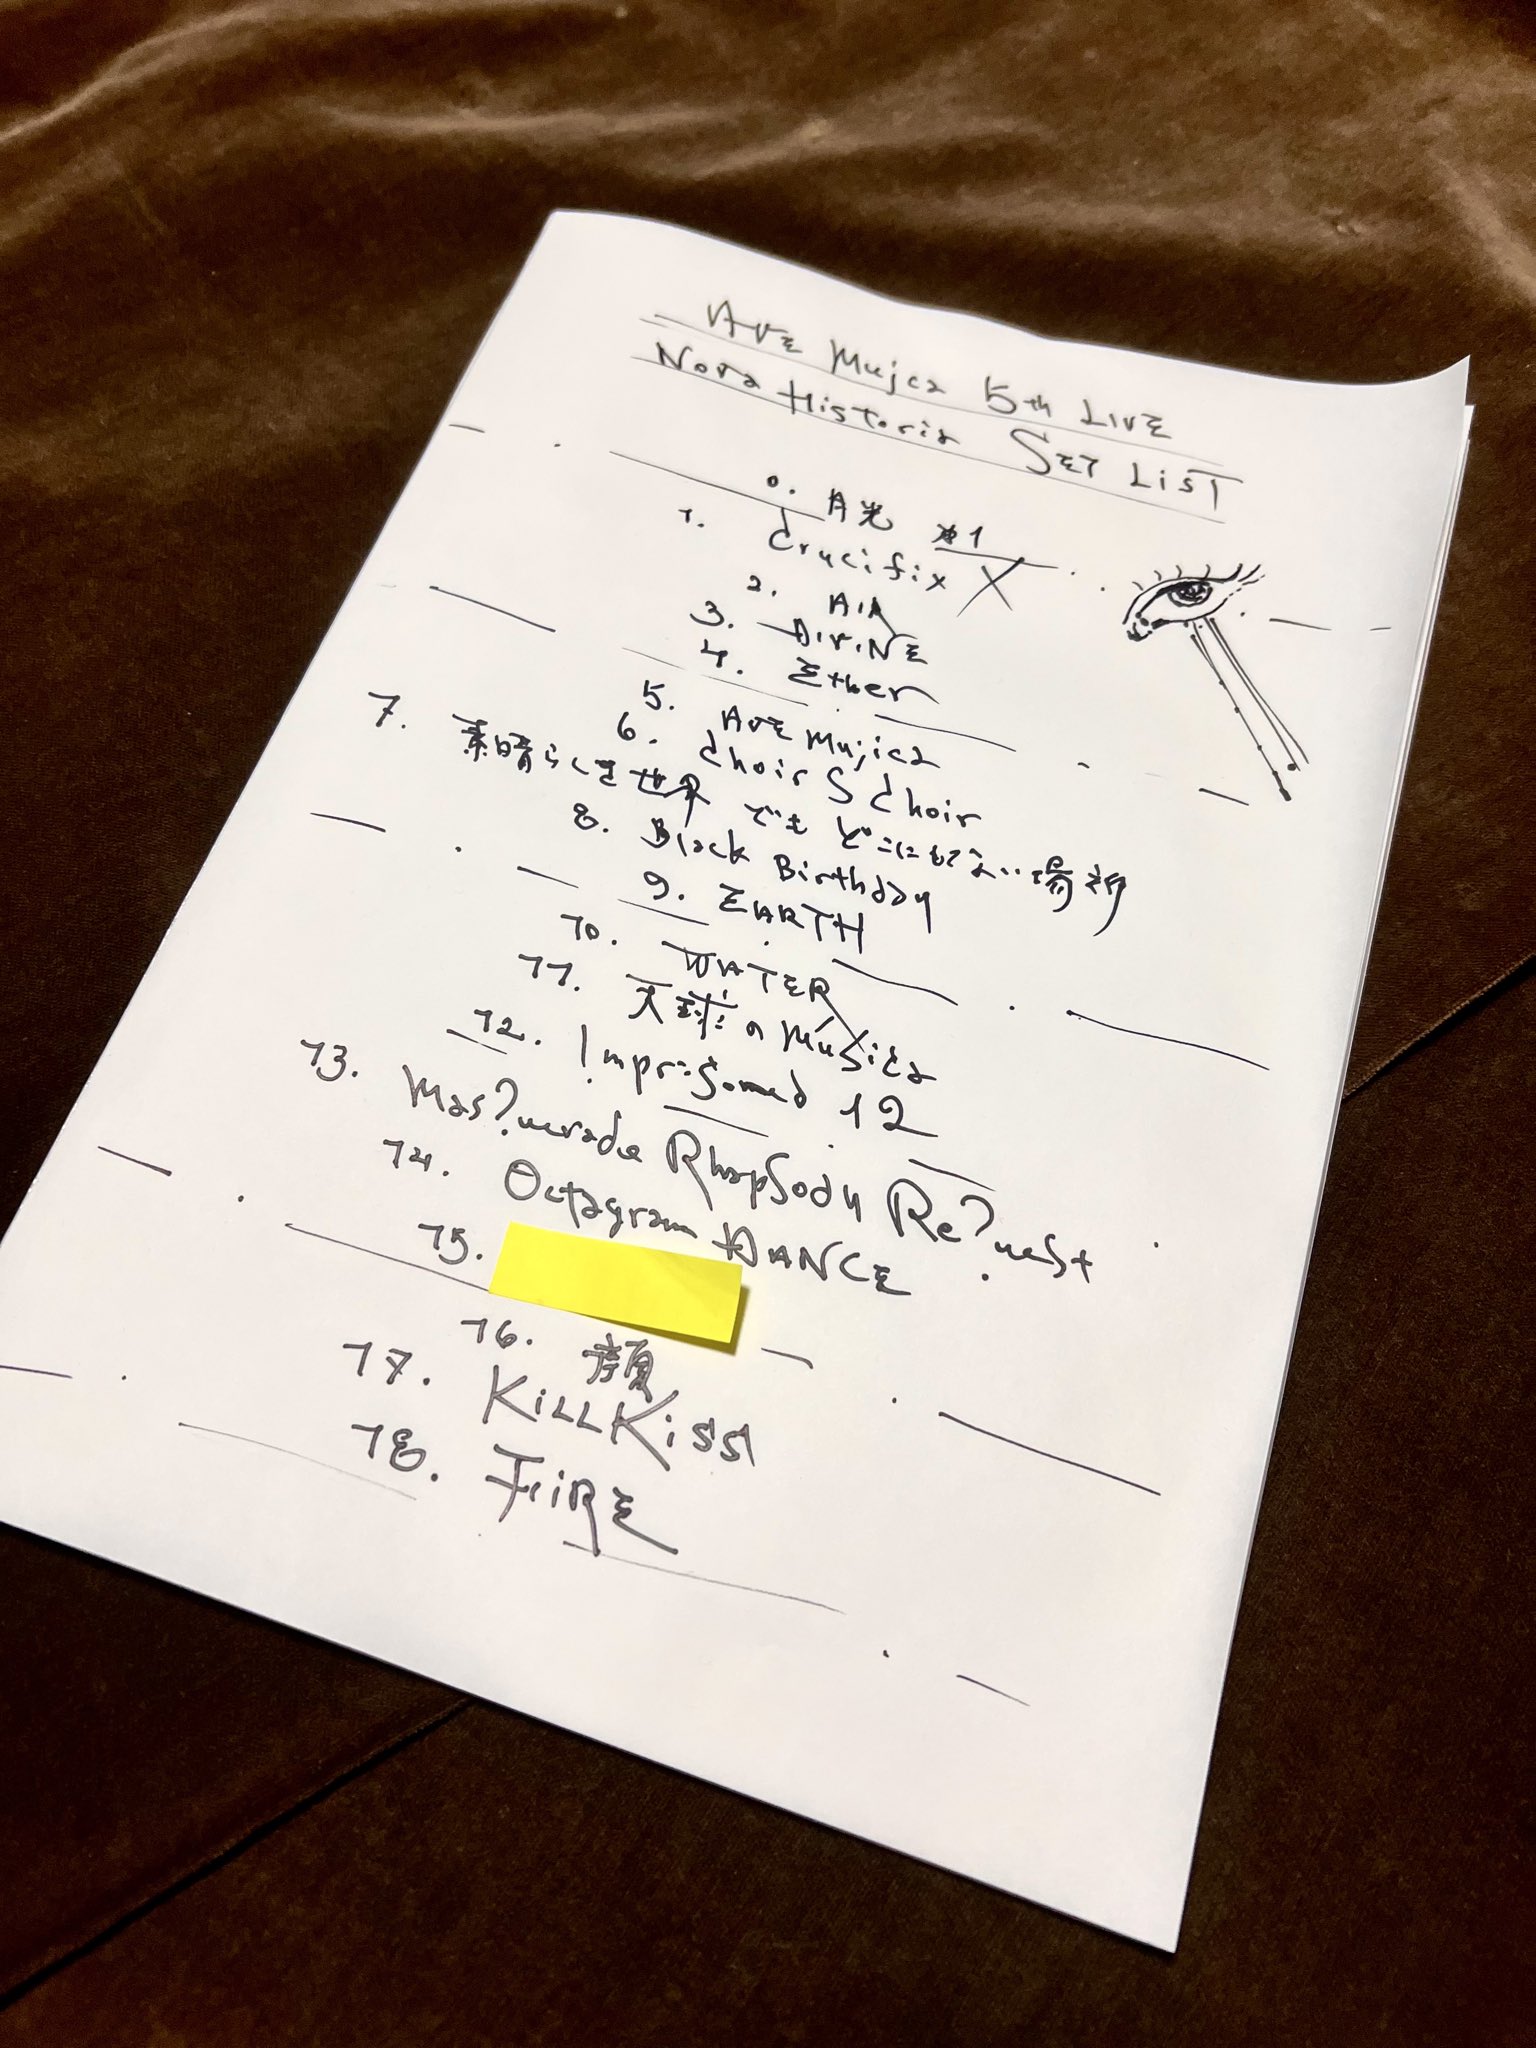 AVE Mujica 5th LIVE
Nova Historia SET LIST
0. 月光 #1
1. Crucifix X
2. AIR
3. DIVINE
4. Ether
5. AVE Mujica
6. Choir S Choir
7. 素晴らしき世界 でも どこにもない 場所
8. Black Birthday
9. EARTH
10. WATER
11. 天球の Música
12. Imprisoned 12
13. Mas?uerade Rhapsody Re?uest
14. Octagram DANCE
15.
16. 顔
17. KiLLKiSS
18. FiRE